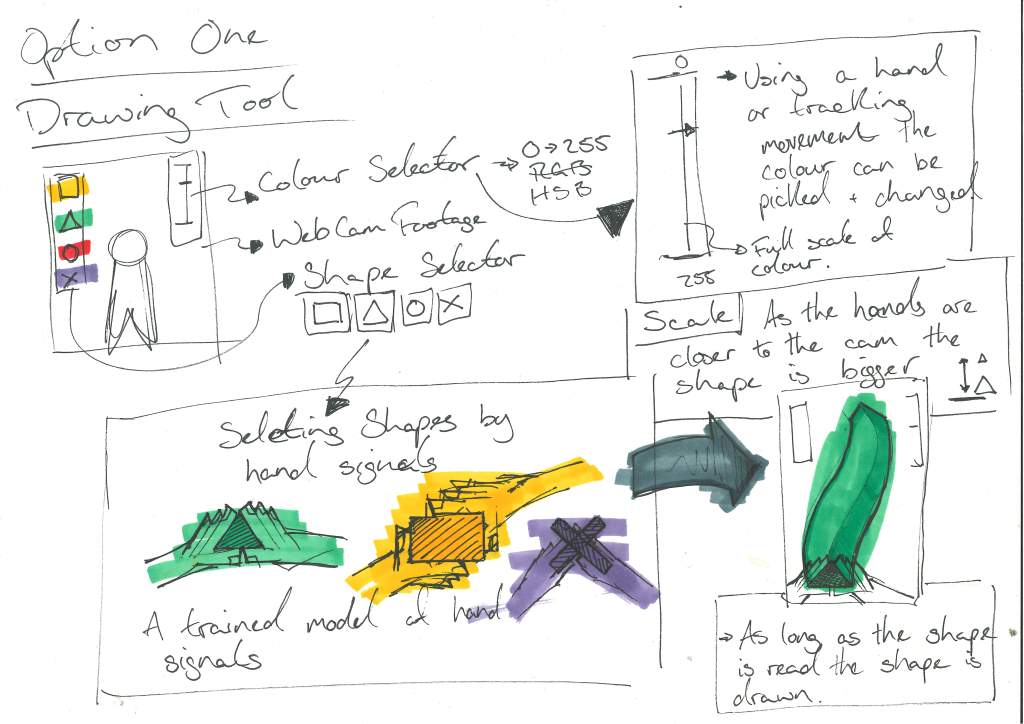 Option One
Drawing Tool
Colour Selector
0→255
RGB
HSB
WebCam Footage
Shape Selector
0
→ Using a hand
or tracking
movement the
colour can be
picked + changed
→ Full scale of
colour.
255
Scale
As the hands are
closer to the cam the
shape is bigger
Seleting Shapes by
hand signals
A trained model of hand
signals
→ As long as the shape
is read the shape is
drawn.